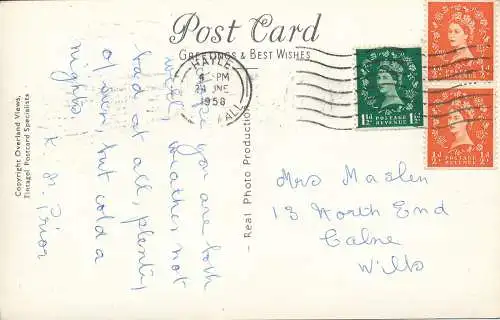 Post Card
GREETINGS & BEST WISHES
HAYLE
4 - PM
24 JNE
1958
½ d
½ d
1½ D
POSTAGE
REVENUE
1½ D
½ d
½ d
Copyright Overland Views,
Tintagel Postcard Specialists
- Real Photo Production -
you are both
well, weather not
bad at all, plenty
of sun, but cold a
nights
K. M. Prior
Mrs Maslen
13 North End
Calne
Wilts